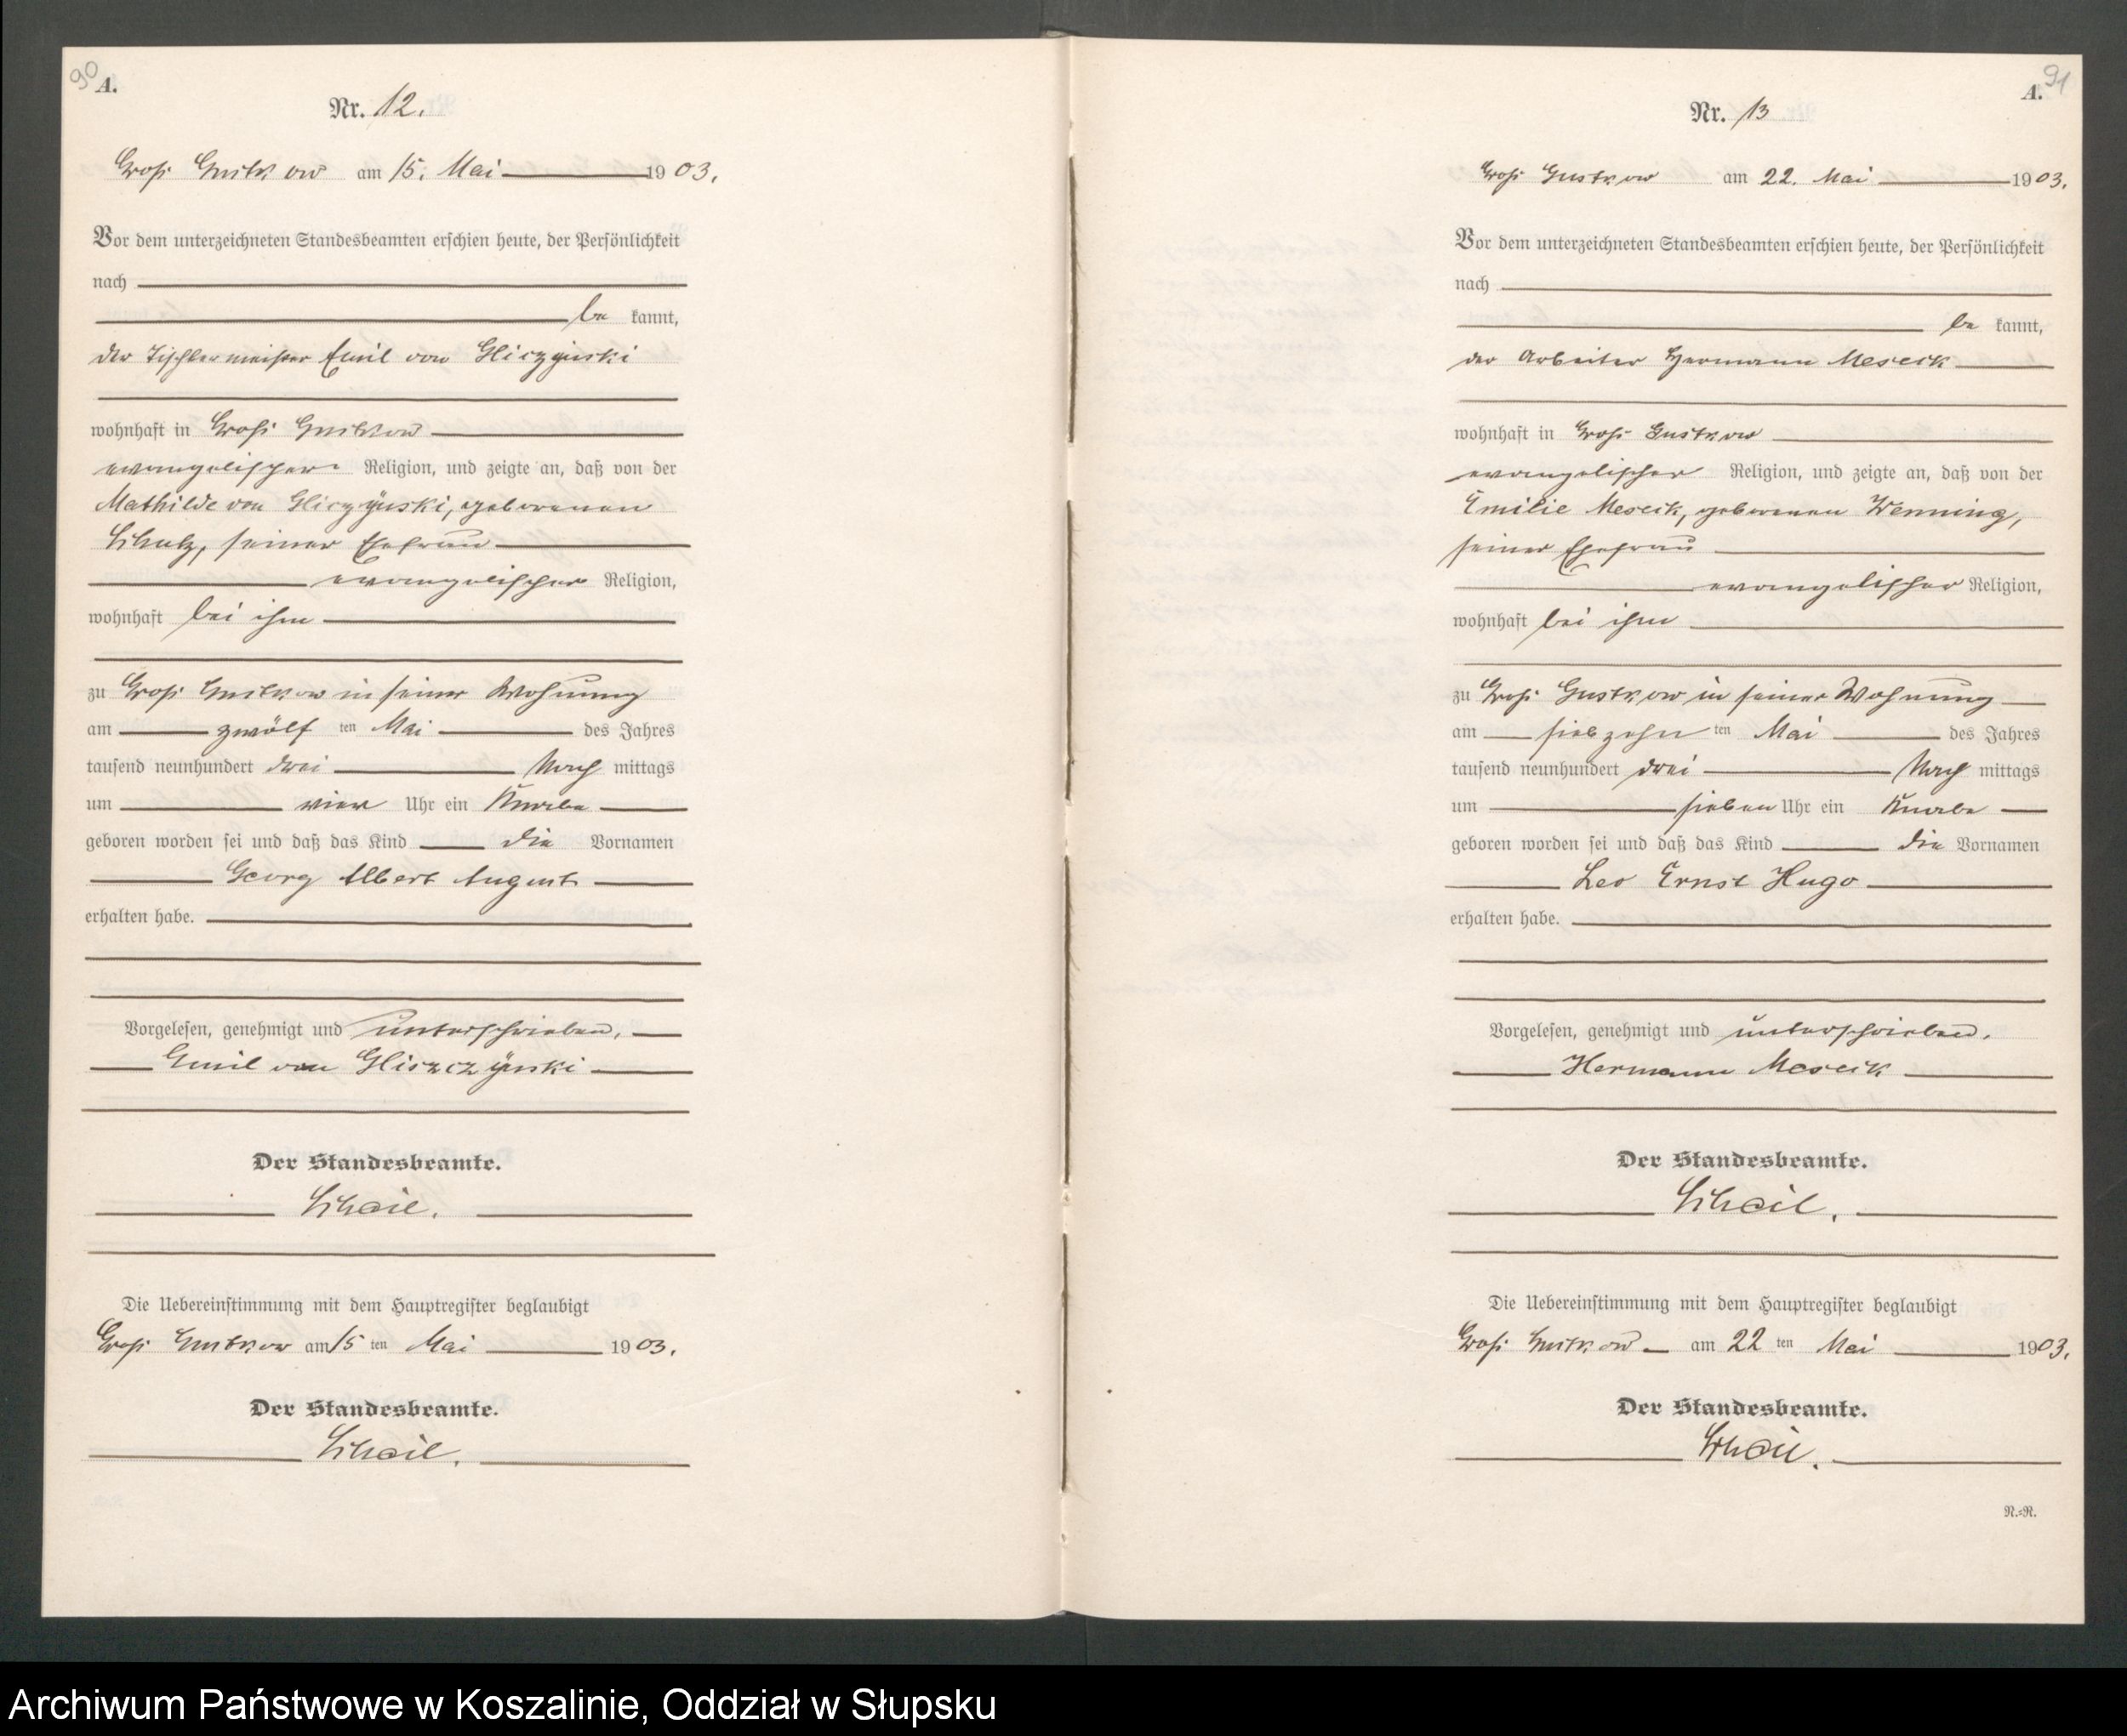 90
A.
Nr. 12.
Groß Gustkow am 15. Mai 1903.
Vor dem unterzeichneten Standesbeamten erschien heute, der Persönlichkeit
nach
be kannt,
der Tischlermeister Emil von Gliczÿnski
wohnhaft in Groß Gustkow
evangelischer Religion, und zeigte an, daß von der
Mathilde von Gliczÿnski, geborenen
Schulz, seiner Ehefrau
evangelischer Religion,
wohnhaft bei ihm
zu Groß Gustkow in seiner Wohnung
am zwölf ten Mai des Jahres
tausend neunhundert drei Nach mittags
um vier Uhr ein Knabe
geboren worden sei und daß das Kind die Vornamen
Georg Albert August
erhalten habe.
Vorgelesen, genehmigt und unterschrieben.
Emil von Gliszczÿnski
Der Standesbeamte.
Scheil.
Die Uebereinstimmung mit dem Hauptregister beglaubigt
Groß Gustkow am 15 ten Mai 1903.
Der Standesbeamte.
Scheil.
91
A.
Nr. 13
Groß Gustkow am 22. Mai 1903.
Vor dem unterzeichneten Standesbeamten erschien heute, der Persönlichkeit
nach
be kannt,
der Arbeiter Hermann Meseck
wohnhaft in Groß Gustkow
evangelischer Religion, und zeigte an, daß von der
Emilie Meseck, geborenen Wenning,
seiner Ehefrau
evangelischer Religion,
wohnhaft bei ihm
zu Groß Gustkow in seiner Wohnung
am siebzehn ten Mai des Jahres
tausend neunhundert drei Nach mittags
um sieben Uhr ein Knabe
geboren worden sei und daß das Kind die Vornamen
Leo Ernst Hugo
erhalten habe.
Vorgelesen, genehmigt und unterschrieben.
Hermann Meseck
Der Standesbeamte.
Scheil.
Die Uebereinstimmung mit dem Hauptregister beglaubigt
Groß Gustkow am 22 ten Mai 1903.
Der Standesbeamte.
Scheil.
N.=N.
Archiwum Państwowe w Koszalinie, Oddział w Słupsku